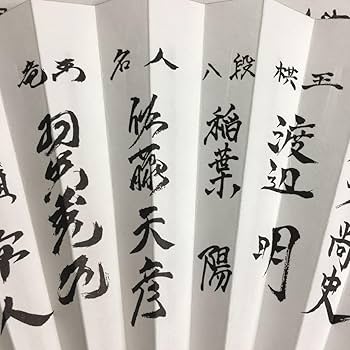 尚史
棋王
渡辺 明
八段
稲葉 陽
名人
佐藤天彦
竜王
羽生善治
章人